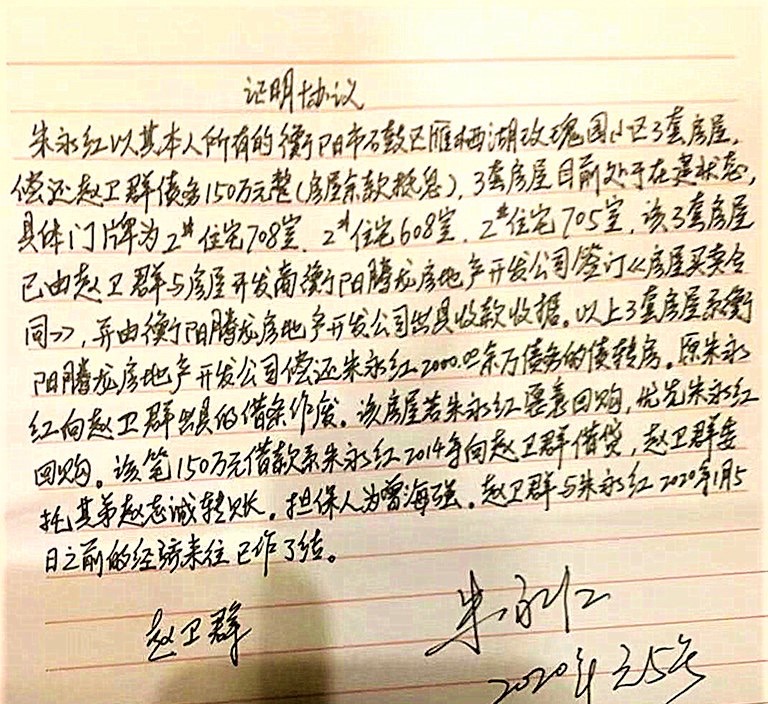 证明协议
朱永红以其本人所有的衡阳市石鼓区雁栖湖玫瑰园小区3套房屋,
偿还赵卫群债务150万元整(房屋余款抵息),3套房屋目前处于在建状态,
具体门牌为2#住宅708室、2#住宅608室、2#住宅705室,该3套房屋
已由赵卫群与房屋开发商衡阳腾龙房地产开发公司签订《房屋买卖合
同》,并由衡阳腾龙房地产开发公司出具收款收据。以上3套房屋系衡
阳腾龙房地产开发公司偿还朱永红2000.00余万债务的债转房。原朱永
红向赵卫群出具的借条作废。该房屋若朱永红愿意回购,优先朱永红
回购。该笔150万元借款系朱永红2014年向赵卫群借贷,赵卫群委
托其弟赵志诚转账。担保人为曾海强。赵卫群与朱永红2020年1月5
日之前的经济来往已作了结。
赵卫群
朱永红
2020年元5号